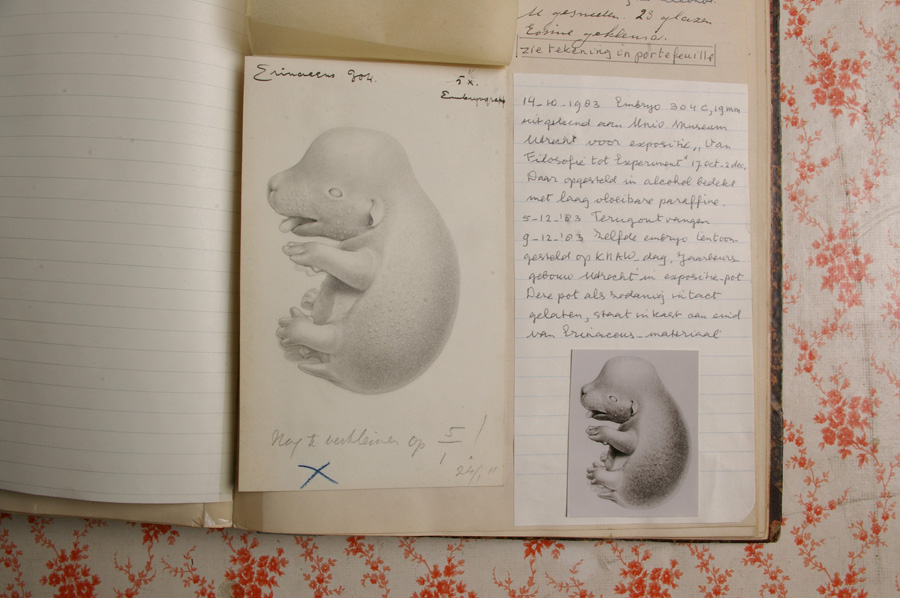 M gesneden. 23 glazen
Eosine gekleurd.
zie tekening in portefeuille
Erinaceus
5 x.
14-10-1983 Embryo 304C, 19 mm
uitgeleend aan Univ Museum
Utrecht voor expositie „Van
Filosofie tot Experiment" 17 oct - 2 dec.
Daar opgesteld in alcohol bedekt
met laag vloeibare paraffine.
5-12-'83 Terugontvangen
9-12-'83 Zelfde embryo tentoon-
gesteld op KNAW-dag, Jaarbeurs
gebouw Utrecht in expositie-pot
Deze pot als zodanig intact
gelaten, staat in kast aan eind
van Erinaceus-materiaal
Nog te verkleinen op 5/1 !